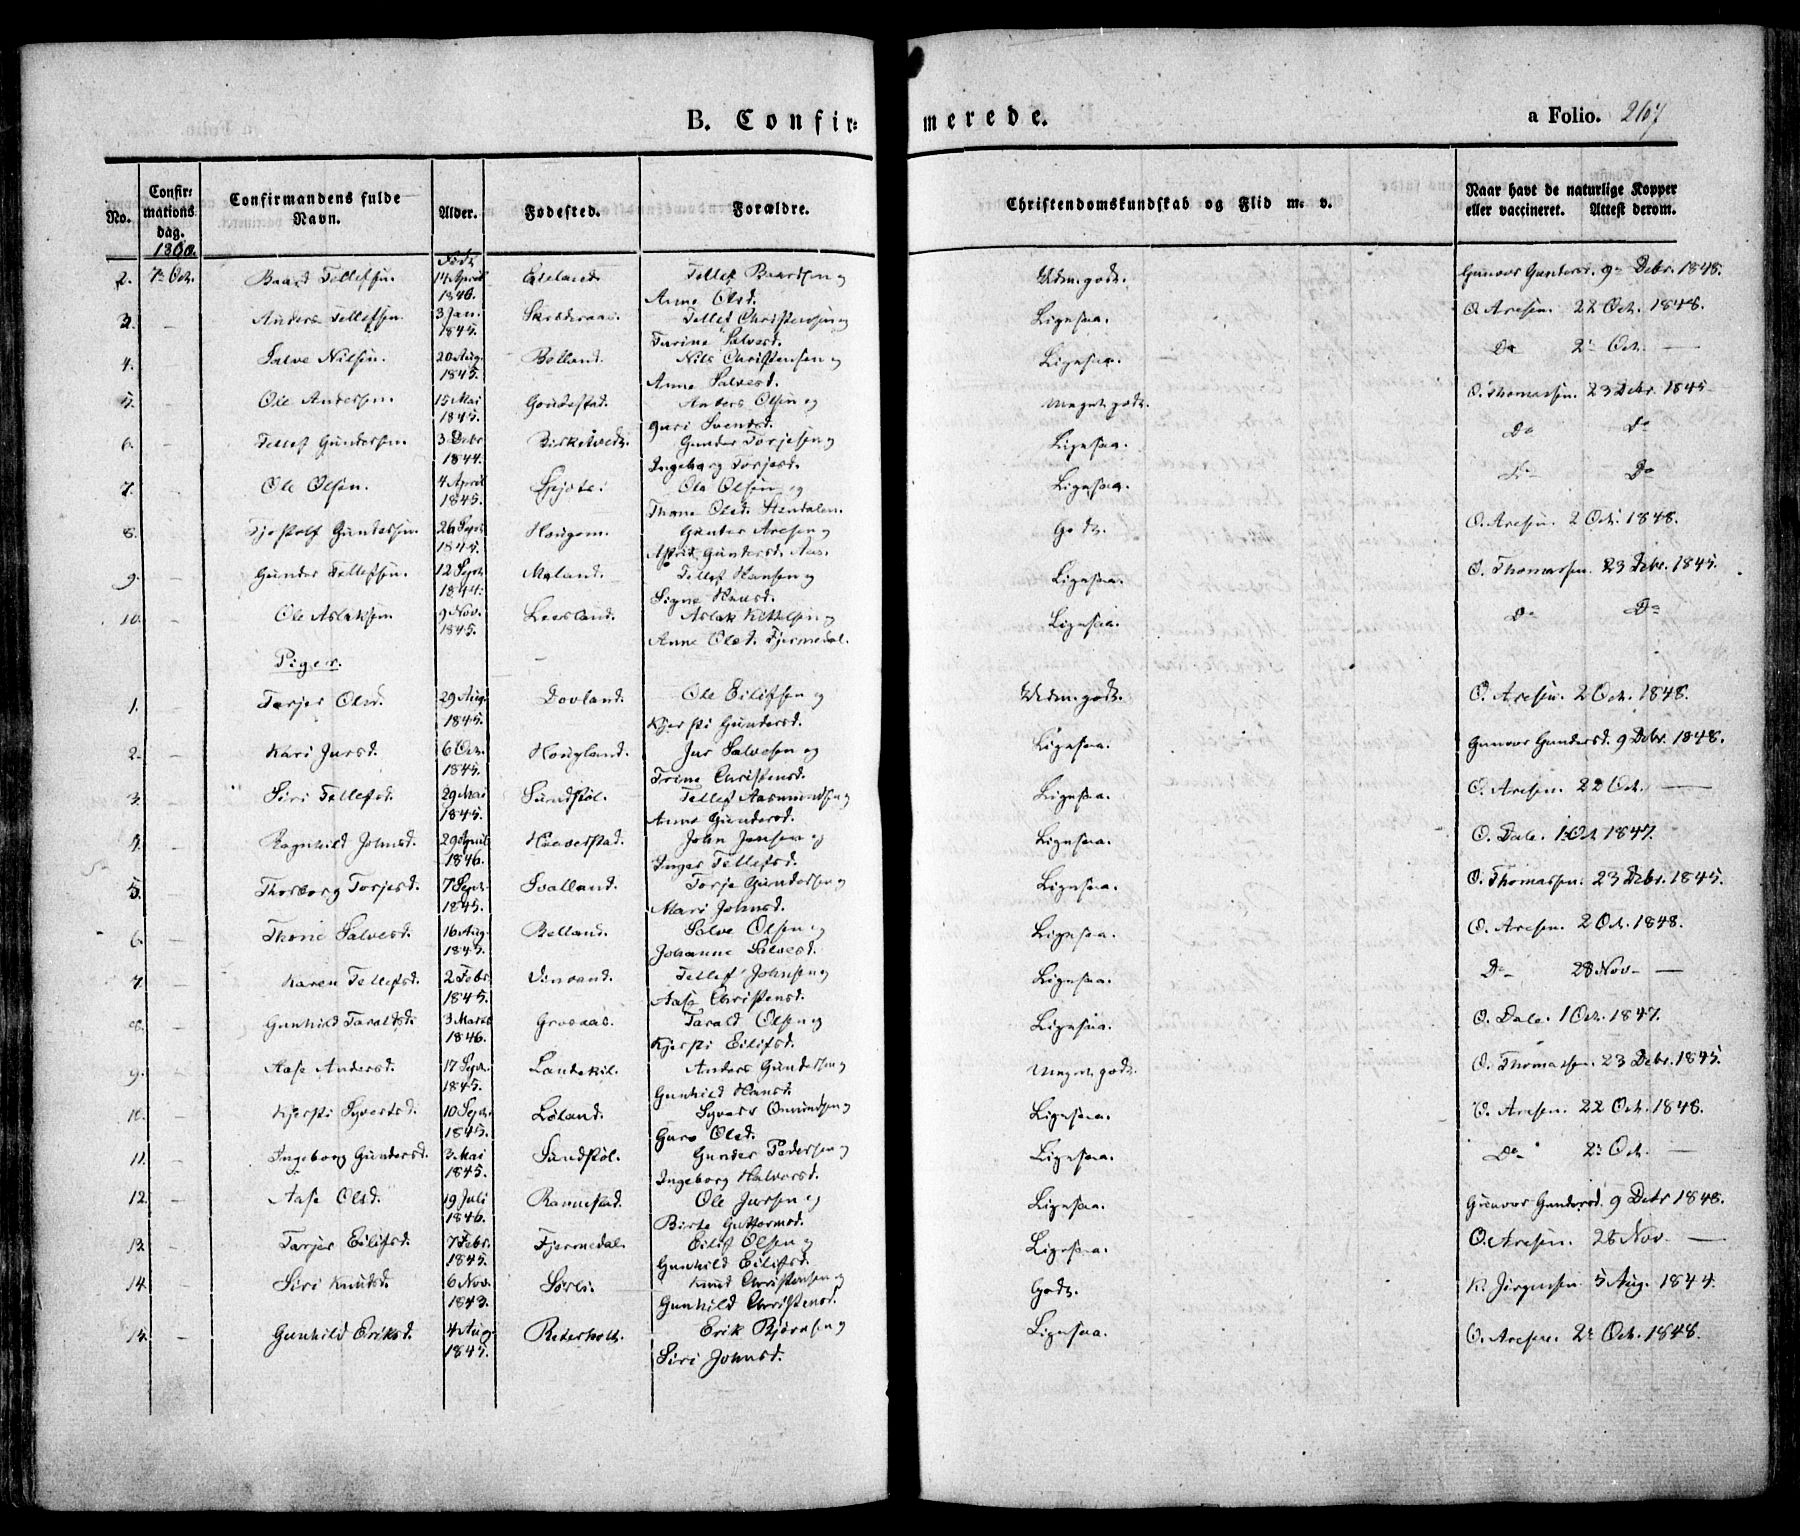 B. Confirmerede. a Folio. 267
No. Confirmations dag. Confirmandens fulde Navn. Alder. Fødested. Forældre. Christendomskundskab og Flid m. v. Naar havt de naturlige Kopper eller vaccineret. Attest derom.
1860. Født
2. 7de Oct. Baard Tellefsen. 14 April 1846. Eieland. Tellef Baardsen og Anne Olsd. Udm. godt. Gunvor Gundersd. 9de Debr. 1848.
3. — Anders Tellefsen 3 Jan. 1845. Skrøderaas. Tellef Christensen og Tarine Salvesd. Ligesaa. O. Aresen. 22 Oct. 1848.
4. — Salve Nilsen. 20 Aug. 1845. Bolland. Nils Christensen og Anne Salvesd. Ligesaa. Do 2. Oct. —
5. — Ole Andersen 15 Mai 1845. Goudestad. Anders Olsen og Guri Svendsd. Meget godt. O. Thomassen. 23 Debr. 1845
6. — Tellef Gundersen 3 Debr 1844. Birketvedt. Gunder Torjesen og Ingeborg Torjesd. Ligesaa. Do Do
7. — Ole Olsen. 4 April 1845. Ole Olsen og Thone Olsd. Stendalen. Ligesaa. Do Do
8. — Gundersen 26 Sept. 1845. Hougom. Gunder Aresen og Astrid Gundersd. Aas. Godt. O. Aresen. 2 Oct. 1848.
9. — Gunder Tellefsen. 12 Sept. 1844. Møland. Tellef Hansen og Signe Knusd. Ligesaa. O. Thomassen. 23 Debr. 1845.
10. — Ole Aslaksen. 9 Nov. 1845. Leesland. Aslak Kittelsen og Anne Olsd. Fjermedal. Ligesaa. Do Do
Piger.
1. — Tarjer Olsd. 29 Aug. 1845. Dovland. Ole Eilifsen og Kjersti Gundersd. Udm. godt. O. Aresen. 2 Oct. 1848.
2. — Kari Jursd. 6 Oct. 1845. Hougland. Jur Salvesen og Trine Christensd. Ligesaa. Gunvor Gundersd. 9 Debr. 1848.
3. — Siri Tellefsd. 29 Mai 1845. Sundstøl. Tellef Aasmundsen og Anne Gundersd. Ligesaa. O. Aresen. 22 Oct. —
4. — Ragnhild Johnsd. 29 April 1846. Haaverstad. John Jensen og Inger Tellefsd. Ligesaa. O. Dale. 1 Oct 1847.
5. — Thorborg Torjesd. 7 Sept. 1845. Svalland. Torje Gundersen og Mari Johnsd. Ligesaa. O. Thomassen. 23 Debr. 1845.
6. — Thone Salvesd. 16 Aug. 1845. Belland. Salve Olsen og Johanne Salvesd. Ligesaa. O. Aresen. 2 Oct. 1848.
7. — Karen Tellefsd. 2 Febr 1845. Tellef Johnsen og Aase Christensd. Ligesaa. Do 28 Nov. —
8. — Gunhild Taraldsd. 3 Marts 1846. Grosaas. Tarald Olsen og Kjersti Eilifsd. Ligesaa. O. Dale. 1 Oct. 1847.
9. — Aase Andersd. 17 Sept. 1845. Landekil. Anders Gundersen og Gunhild Hansd. Meget godt. O. Thomassen. 23 Debr. 1845.
10. — Kjersti Syvertsd. 10 Sept. 1845. Løland. Syvert Omundsen og Guro Olsd. Ligesaa. O. Aresen. 22 Oct. 1848.
11. — Ingeborg Gundersd. 3 Mai 1845. Sundstøl. Gunder Pedersen og Ingeborg Halvorsd. Ligesaa. Do 2. Oct. —
12. — Aase Olsd. 19 Juli 1846. Rannestad. Ole Jursen og Birte Guttormsd. Ligesaa. Gunvor Gundersd. 9 Debr 1848.
13. — Tarjer Eilifsd. 7 Febr. 1845. Fjermedal. Eilif Olsen og Gunhild Eilifsd. Ligesaa. O. Aresen. 28 Nov. —
14. — Siri Knudsd. 6 Nov. 1843. Sørli. Knud Christensen og Gunhild Christensd. Godt. K. Jørgensen 5 Aug. 1844.
14. — Gunhild Eriksd. 4 Aug. 1845. Røiersholt. Erik Bjørnsen og Siri Johnsd. Ligesaa. O. Aresen. 2. Oct. 1848.